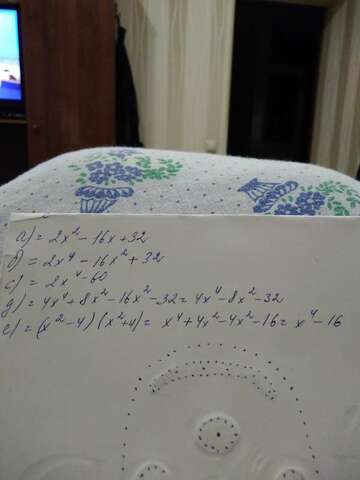 а) = 2x² - 16x + 32
б) = 2x⁴ - 16x² + 32
с) = 2x⁴ - 60
g) = 4x⁴ + 8x² - 16x² - 32 = 4x⁴ - 8x² - 32
е) = (x² - 4)(x² + 4) = x⁴ + 4x² - 4x² - 16 = x⁴ - 16